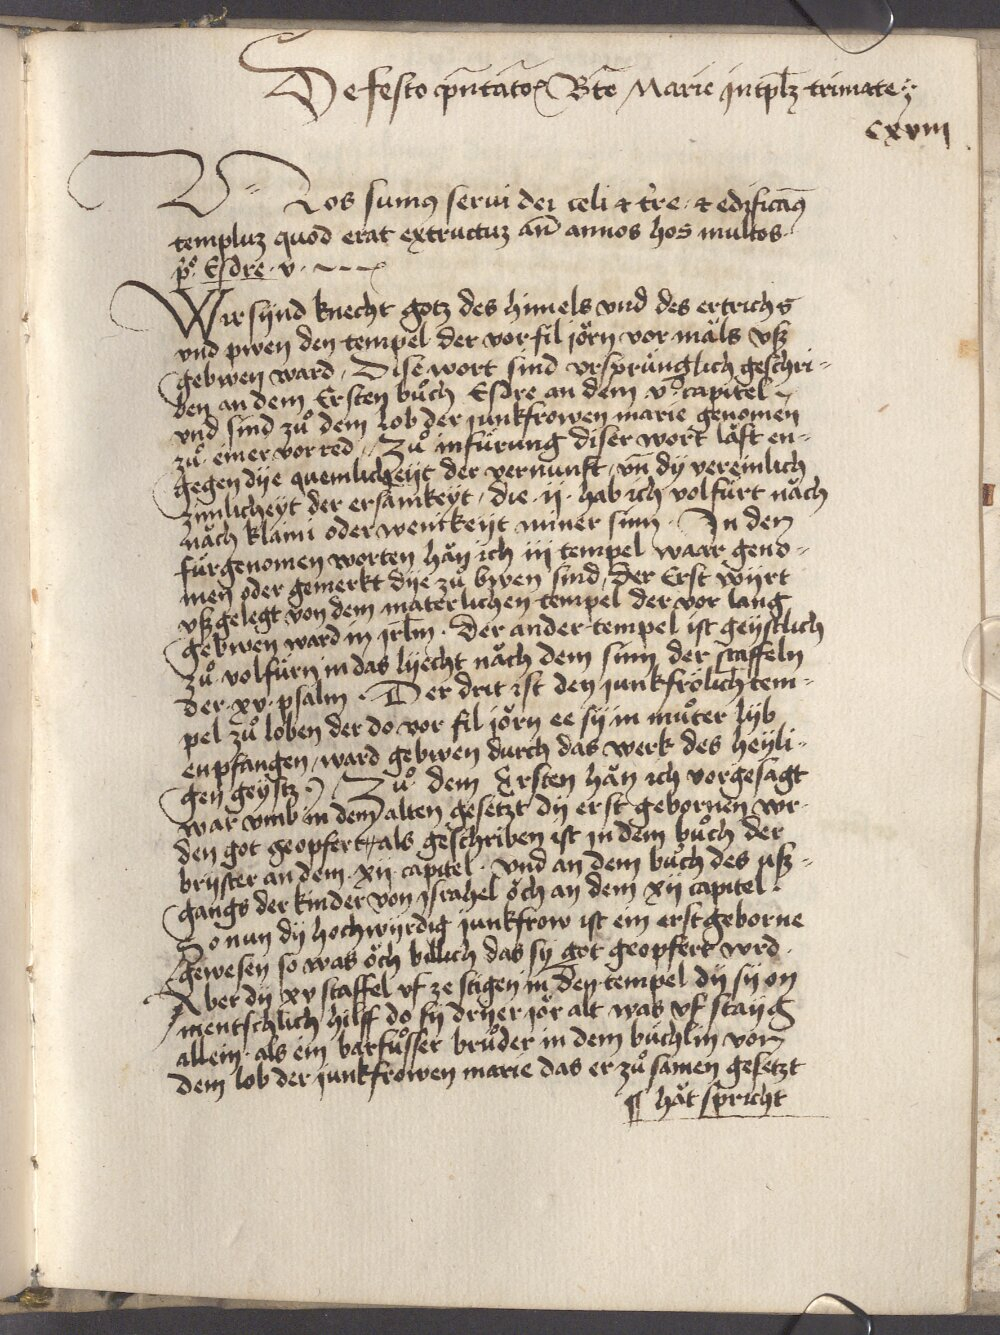 De festo pn̄tatōis Btē Marie in tplꝫ trimate
cxviii
Nos sumꝰ serui dei celi ⁊ tr̄e · ⁊ edificamꝰ
templuꝫ quod erat extructuꝫ an̄ annos hos multos ·
pº. Esdre · v ·
Wir sÿnd knecht gotz des himels vnd des ertrichs
vnd pwen den tempel der vor fil jörn vor mäls vß
gebwen ward / Dise wort sind vrsprünglich geschri-
ben an dem Ersten bůch Esdre an dem · vº capitel
vnd sind zů dem lob der junkfrowen marie genomen
zů · einer vor red / Zů infürung diser wort läst en-
gegen dÿe quemlicheÿt der vernunft / vn̄ dÿ vereinlich
zimlicheyt der ersamkeÿt / die · ij · hab ich volfürt näch
näch klaini oder wenikeÿt miner sinn · In den
fürgenomen worten hän ich iij tempel waar geno-
men oder gemerkt dÿe zů bwen sind / Der Erst wÿrt
vßgelegt von dem materlichen tempel der vor lang
gebwen ward in jrlm̄ · Der ander tempel ist geÿstlich
zů volfürn in das lÿecht näch dem sinn der staffeln
der · xv · psalm · Der drit ist den junkfrölich tem-
pel zů loben der do vor fil jörn ee sÿ in můter lÿb
enpfangen / ward gebwen durch das werk des heÿli-
gen geÿstz · Zů dem Ersten hän ich vorgesagt
war vmb in dem alten gesetzt dÿ erst gebornen wr-
den got geopfert / als geschriben ist in dem bůch der
brÿster an dem · xij · capitel · vnd an dem bůch des uß-
gangs der kinder von jsrahel öch an dem xij capitel ·
So nun dÿ hochwÿrdig junkfrow ist ein erstgeborne
gewesen so was öch billich das sÿ got geopfert wrd ·
Aber dÿ xv staffel vf ze stigen in den tempel dÿ sÿ on
mentschlich hilff do sÿ drÿer jör alt was vf staÿg
allein · als ein barfůsser brůder in dem büchlin von
dem lob der junkfrowen marie das er zů samen gesetzt
¶ hät spricht